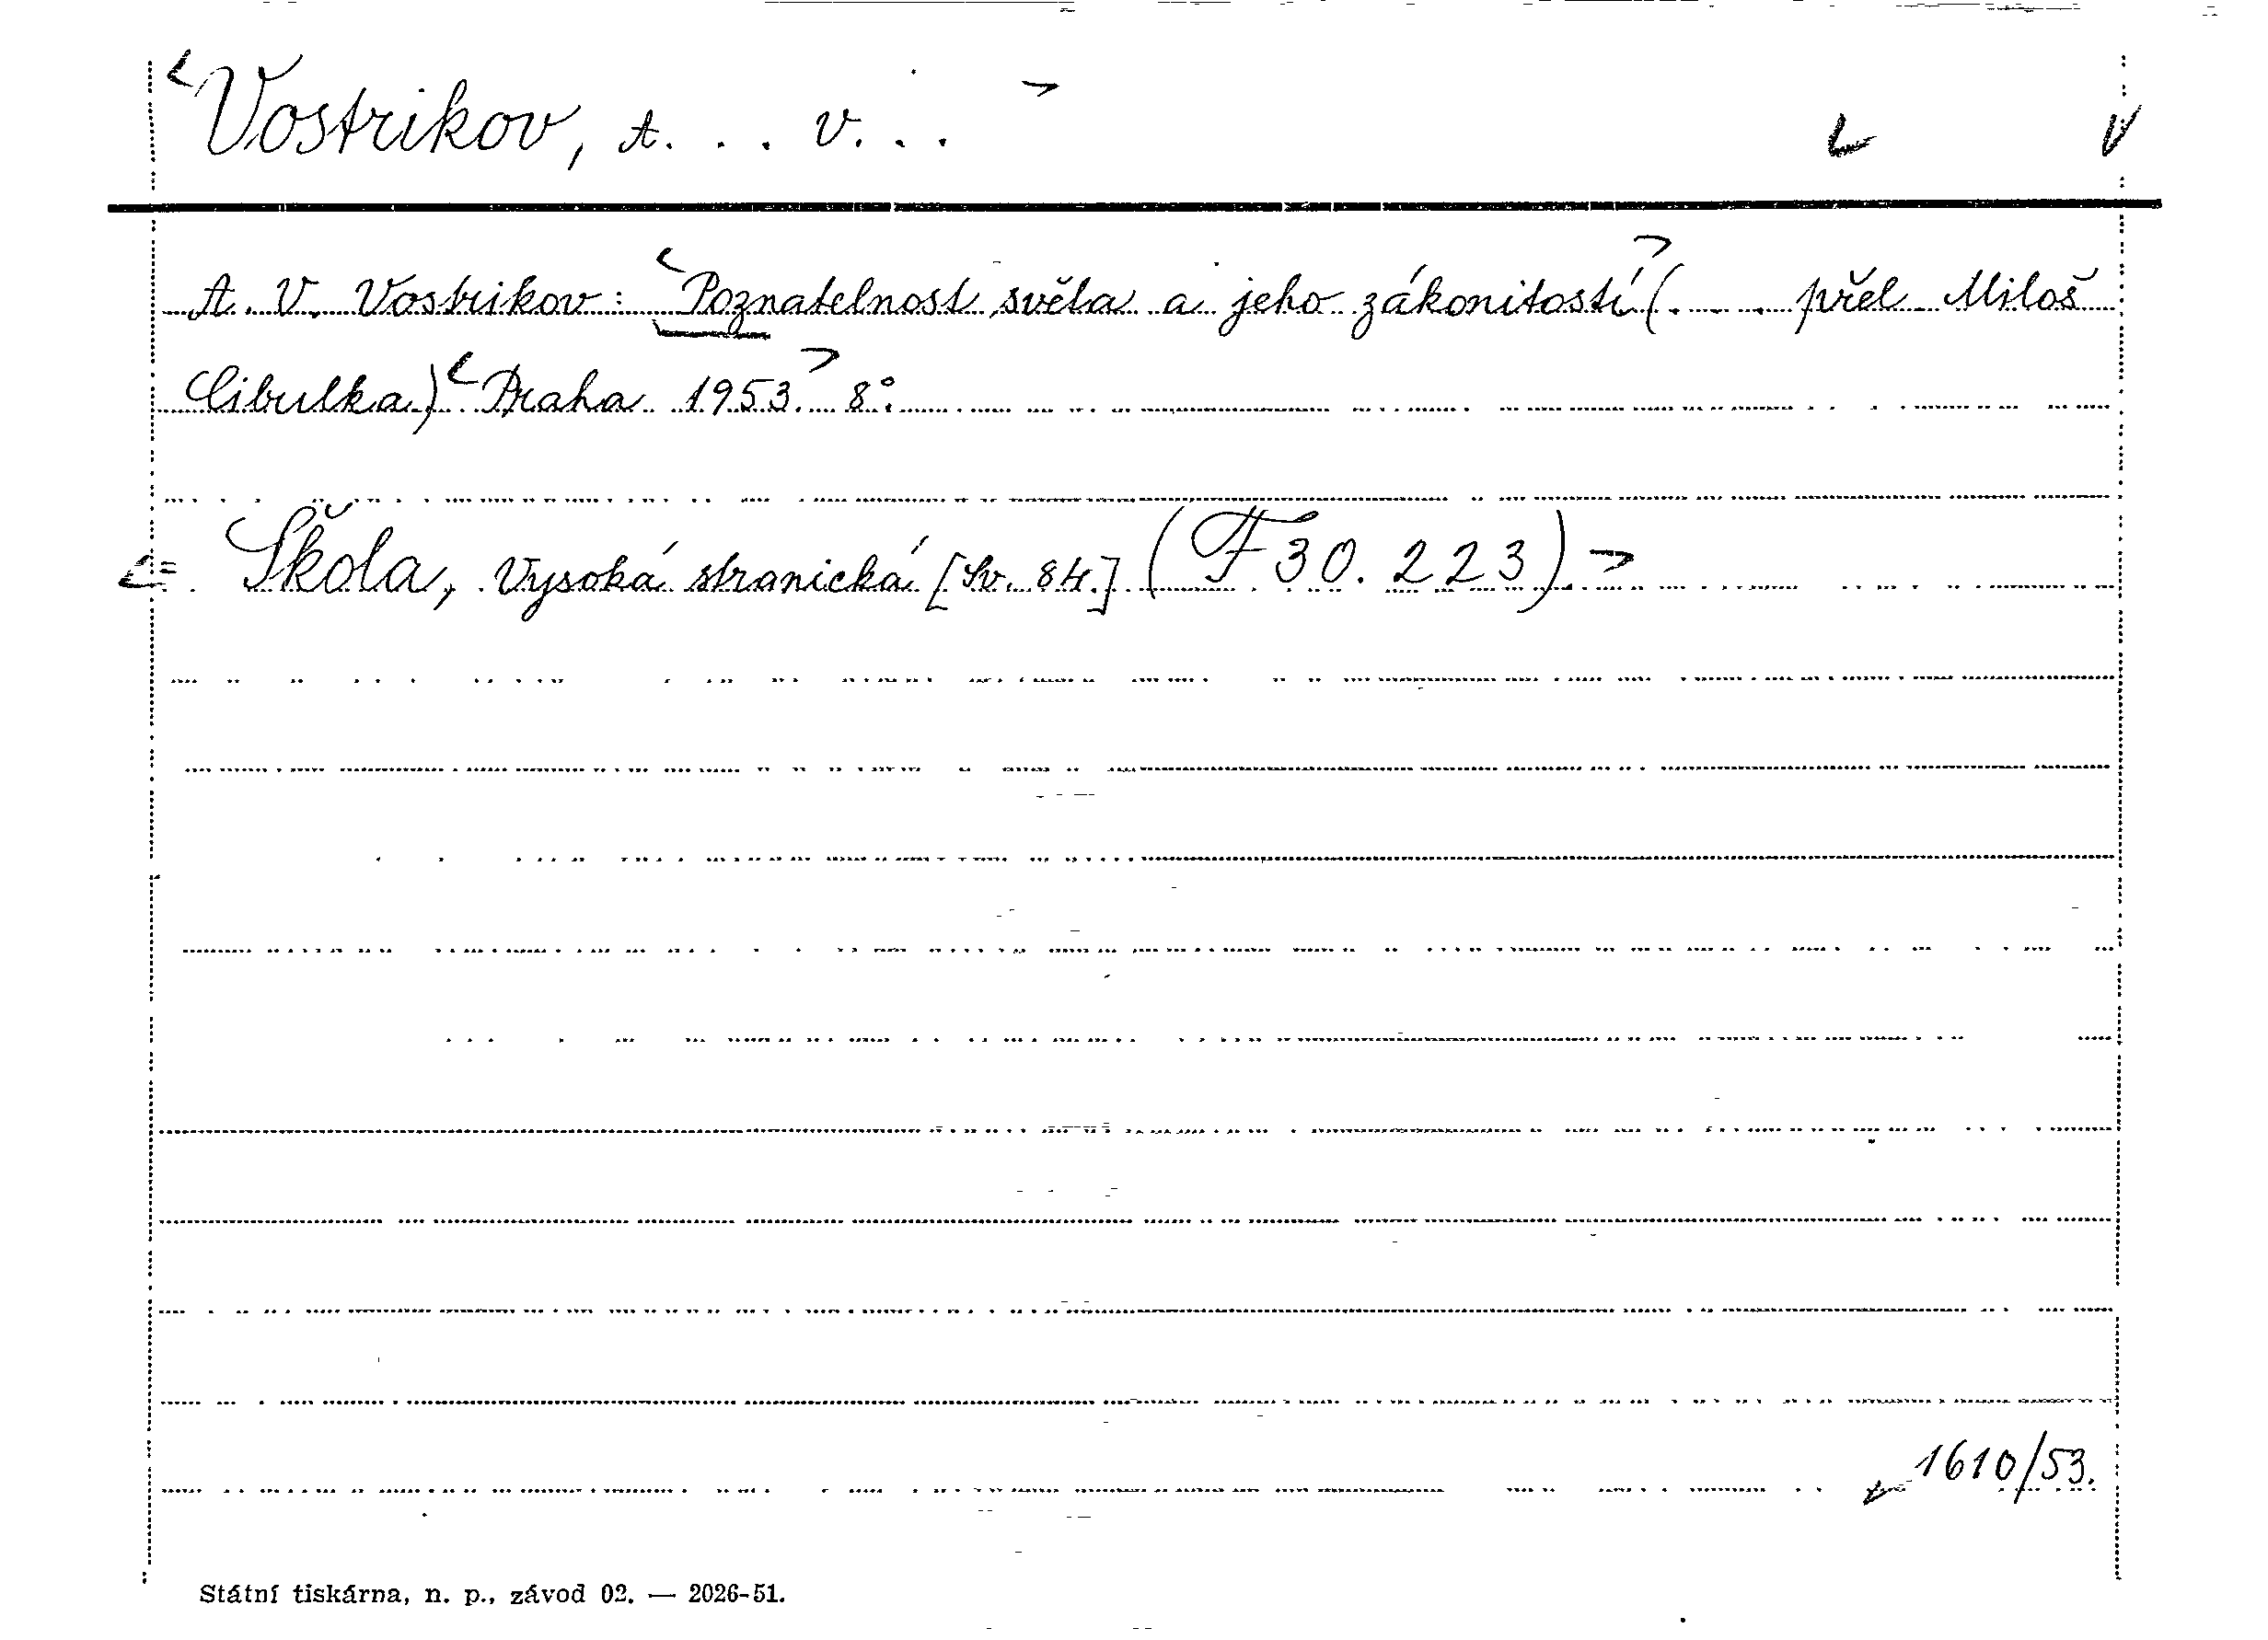 Vostrikov, A. . . V. . .
A. V. Vostrikov: Poznatelnost světa a jeho zákonitostí (. . . přel. Miloš
Cibulka) Praha 1953. 8°.
= Škola, Vysoká stranická [Sv. 84.] (F 30. 223).
1610/53.
Státní tiskárna, n. p., závod 02. — 2026-51.